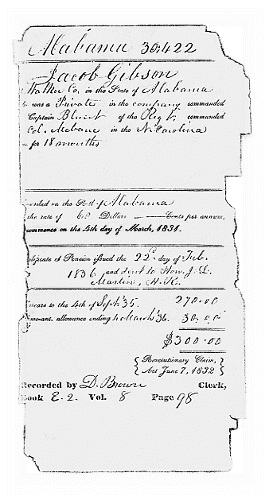 Alabama 30422
Jacob Gibson
Walker Co. in the State of Alabama
was a Private in the company commanded
Captain Blount of the Regt. commanded
Col. Mebane in the N. Carolina
for 18 months
on the Roll of Alabama
the rate of 60 Dollars Cents per annum,
commence on the 4th day of March, 1834.
of Pension issued the 22d day of Feb.
1836 and sent to Hon. J. L.
Martin, H. R.
to the 4th of Sept. 35. 270.00
allowance ending 4 March 36. 30.00
$300.00
Revolutionary Claim,
Act June 7, 1832
Recorded by D. Brown Clerk,
Book E. 2. Vol. 8 Page 98